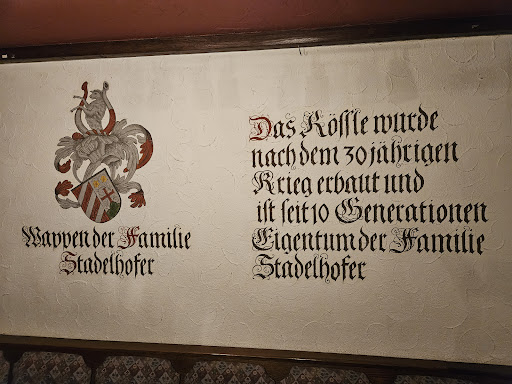 Wappen der Familie
Stadelhofer
Das Rössle wurde
nach dem 30 jährigen
Krieg erbaut und
ist seit 10 Generationen
Eigentum der Familie
Stadelhofer